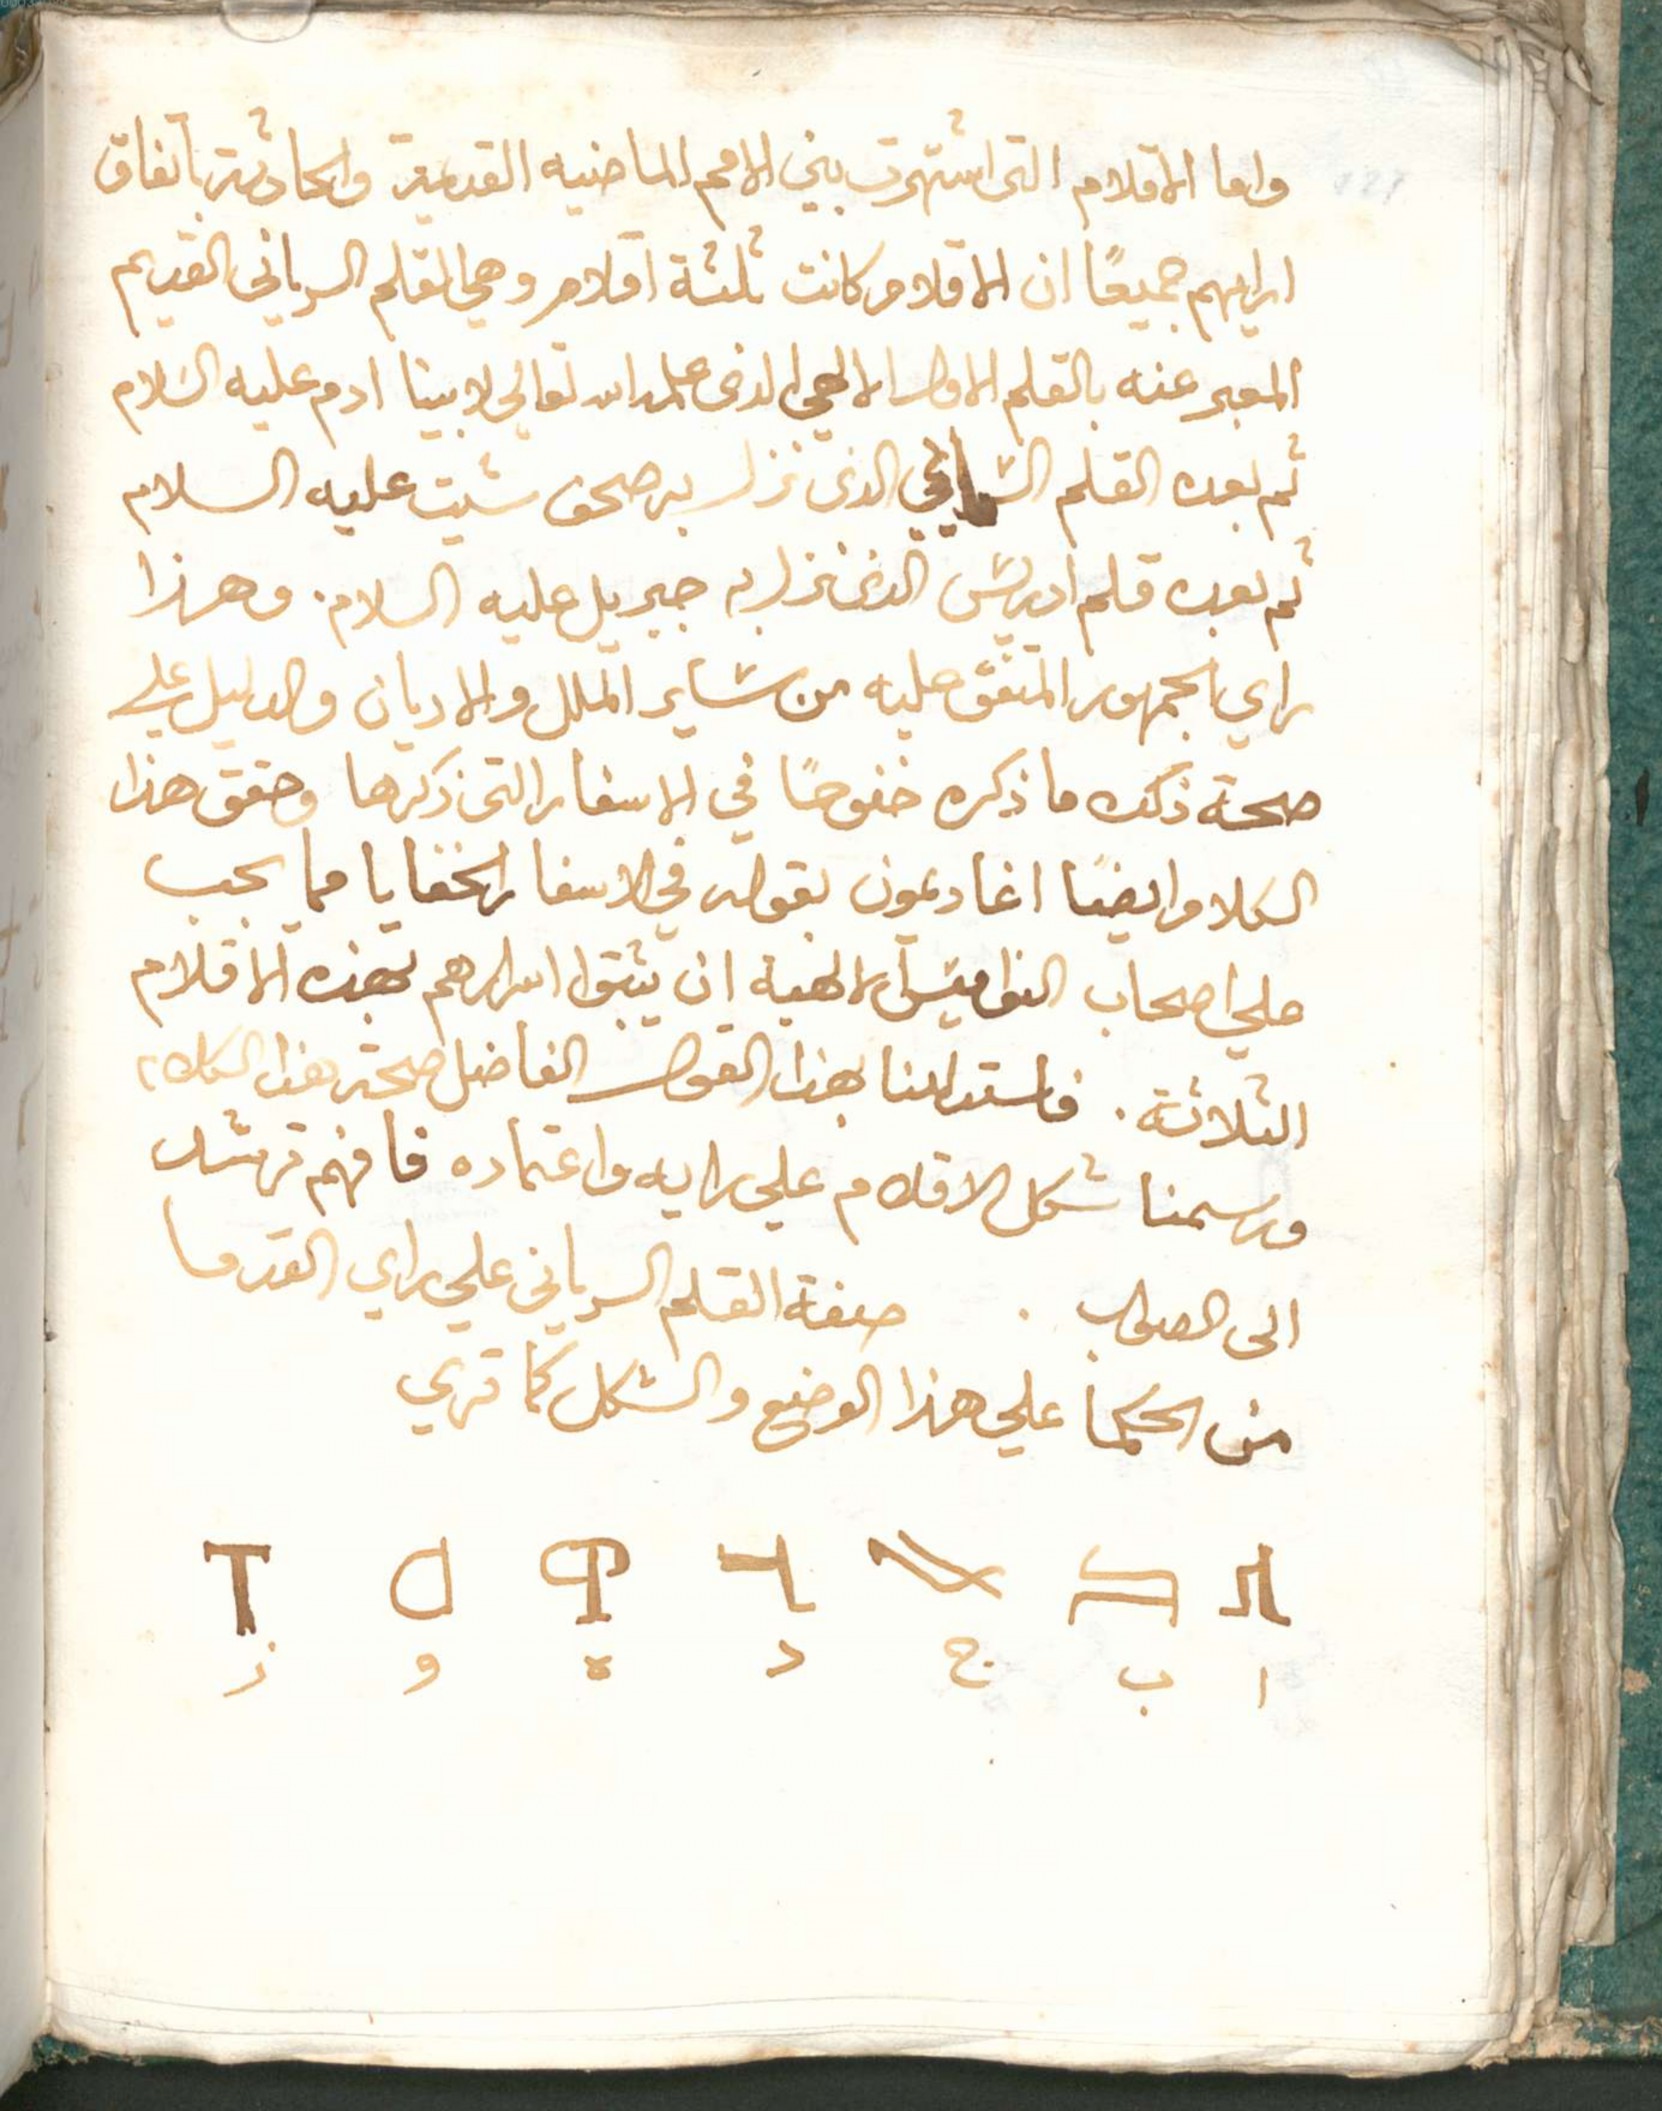 واما الاقلام التى اشتهرت بين الامم الماضيه القديمة والحادثة باتفاق
ارايهم جميعًا ان الاقلام كانت ثلثة اقلام وهي القلم السرياني القديم
المعبر عنه بالقلم الاول الالهي الذى علمه الله تعالي لابينا ادم عليه السلام
ثم بعده القلم الذى نزل به صحف شيت عليه السلام
ثم بعده قلم ادريس الذى نزل به جبريل عليه السلام. وهذا
راي الجمهور المتفق عليه من ساير الملل والاديان والدليل علي
صحة ذلك ما ذكره خنوخًا في الاسفار التى ذكرها وحقق هذا
الكلام ايضًا اغاديمون بقوله في الاسفار الخفايا مما يجب
علي اصحاب النواميس الالهية ان يثبتوا اسرارهم بهذه الاقلام
الثلاثة. فاستدللنا بهذا القول الفاضل صحة هذا الكلام
ورسمنا شكل الاقلام علي رايه واعتماده فافهم ترشد
الى الصواب . صفة القلم السرياني علي راي القدما
من الحكما علي هذا الوضع والشكل كما تري
ا ب ج د ه و ز